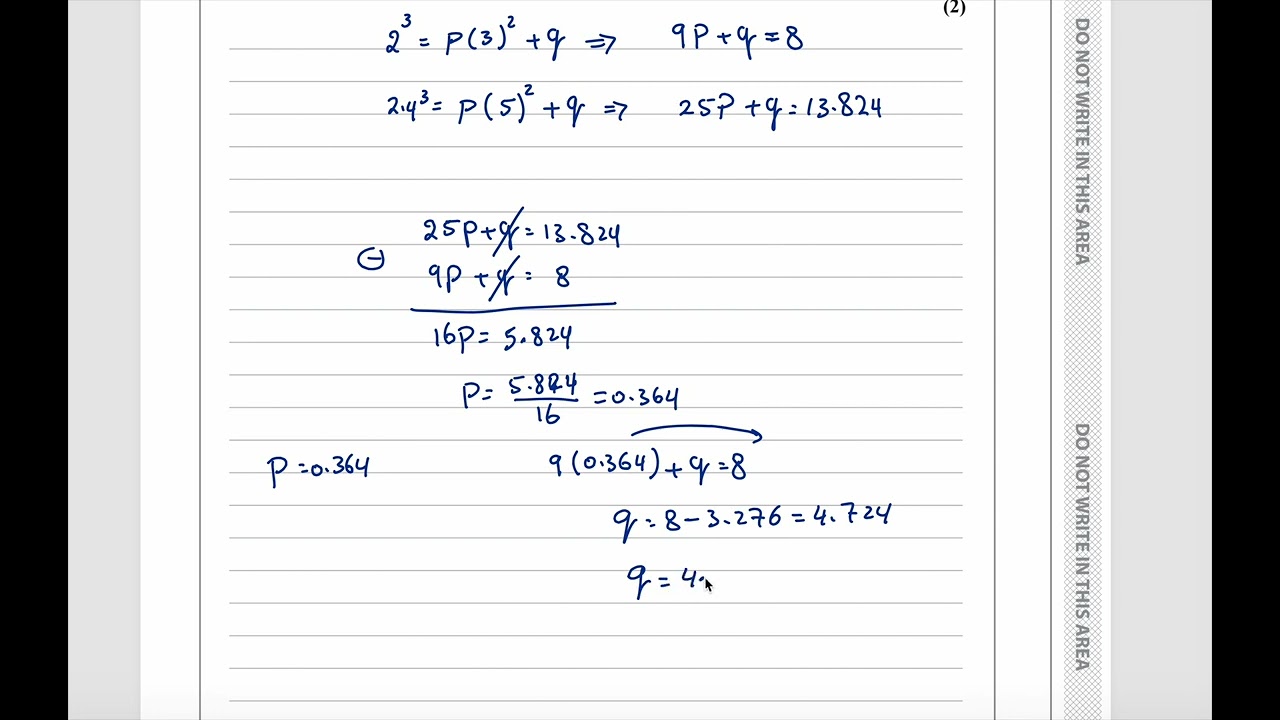 (2)
2³ = P(3)² + q ⇒ 9P + q = 8
2.4³ = P(5)² + q ⇒ 25P + q = 13.824
25P + q = 13.824
⊖ 9P + q = 8
16P = 5.824
P = 5.824/16 = 0.364
P = 0.364 9(0.364) + q = 8
q = 8 - 3.276 = 4.724
q = 4.
DO NOT WRITE IN THIS AREA
DO NOT WRITE IN THIS AREA